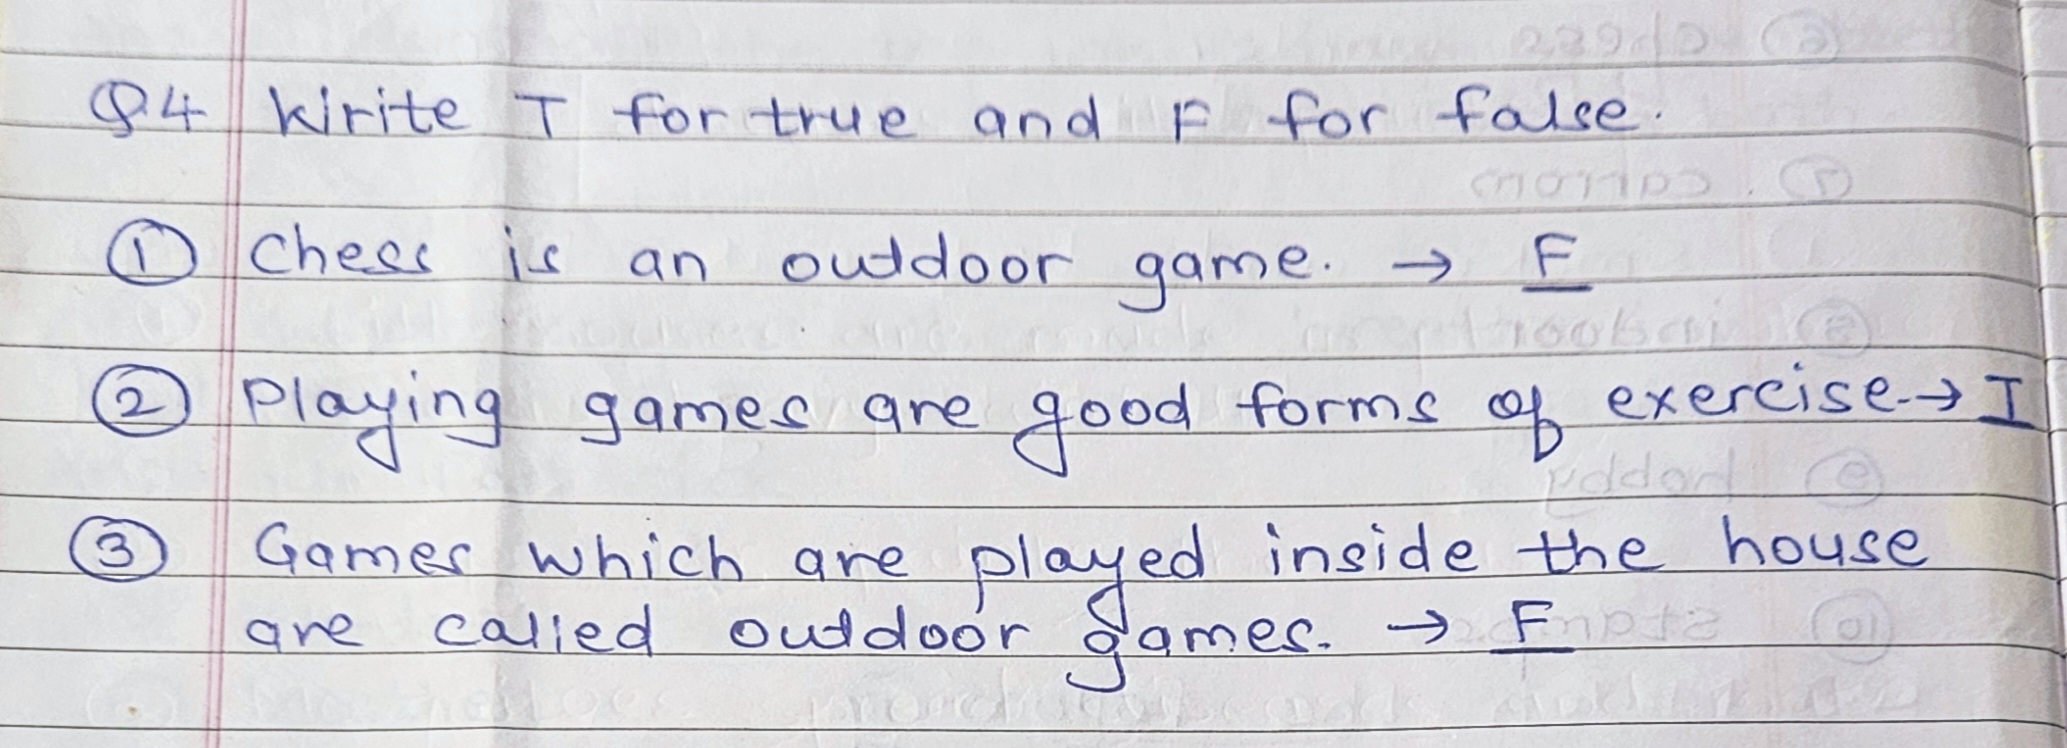 Q.4 Write T for true and F for false.
① Chess is an outdoor game. → F
② Playing games are good forms of exercise. → T
③ Games which are played inside the house
are called outdoor games. → F